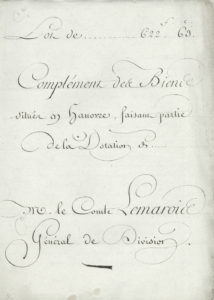 Lot de ......... 622.f 63.
Complément des Biens
situés en Hanovre, faisant partie
de la Dotation de .....
M. le Comte Lemarois
Général de Division.